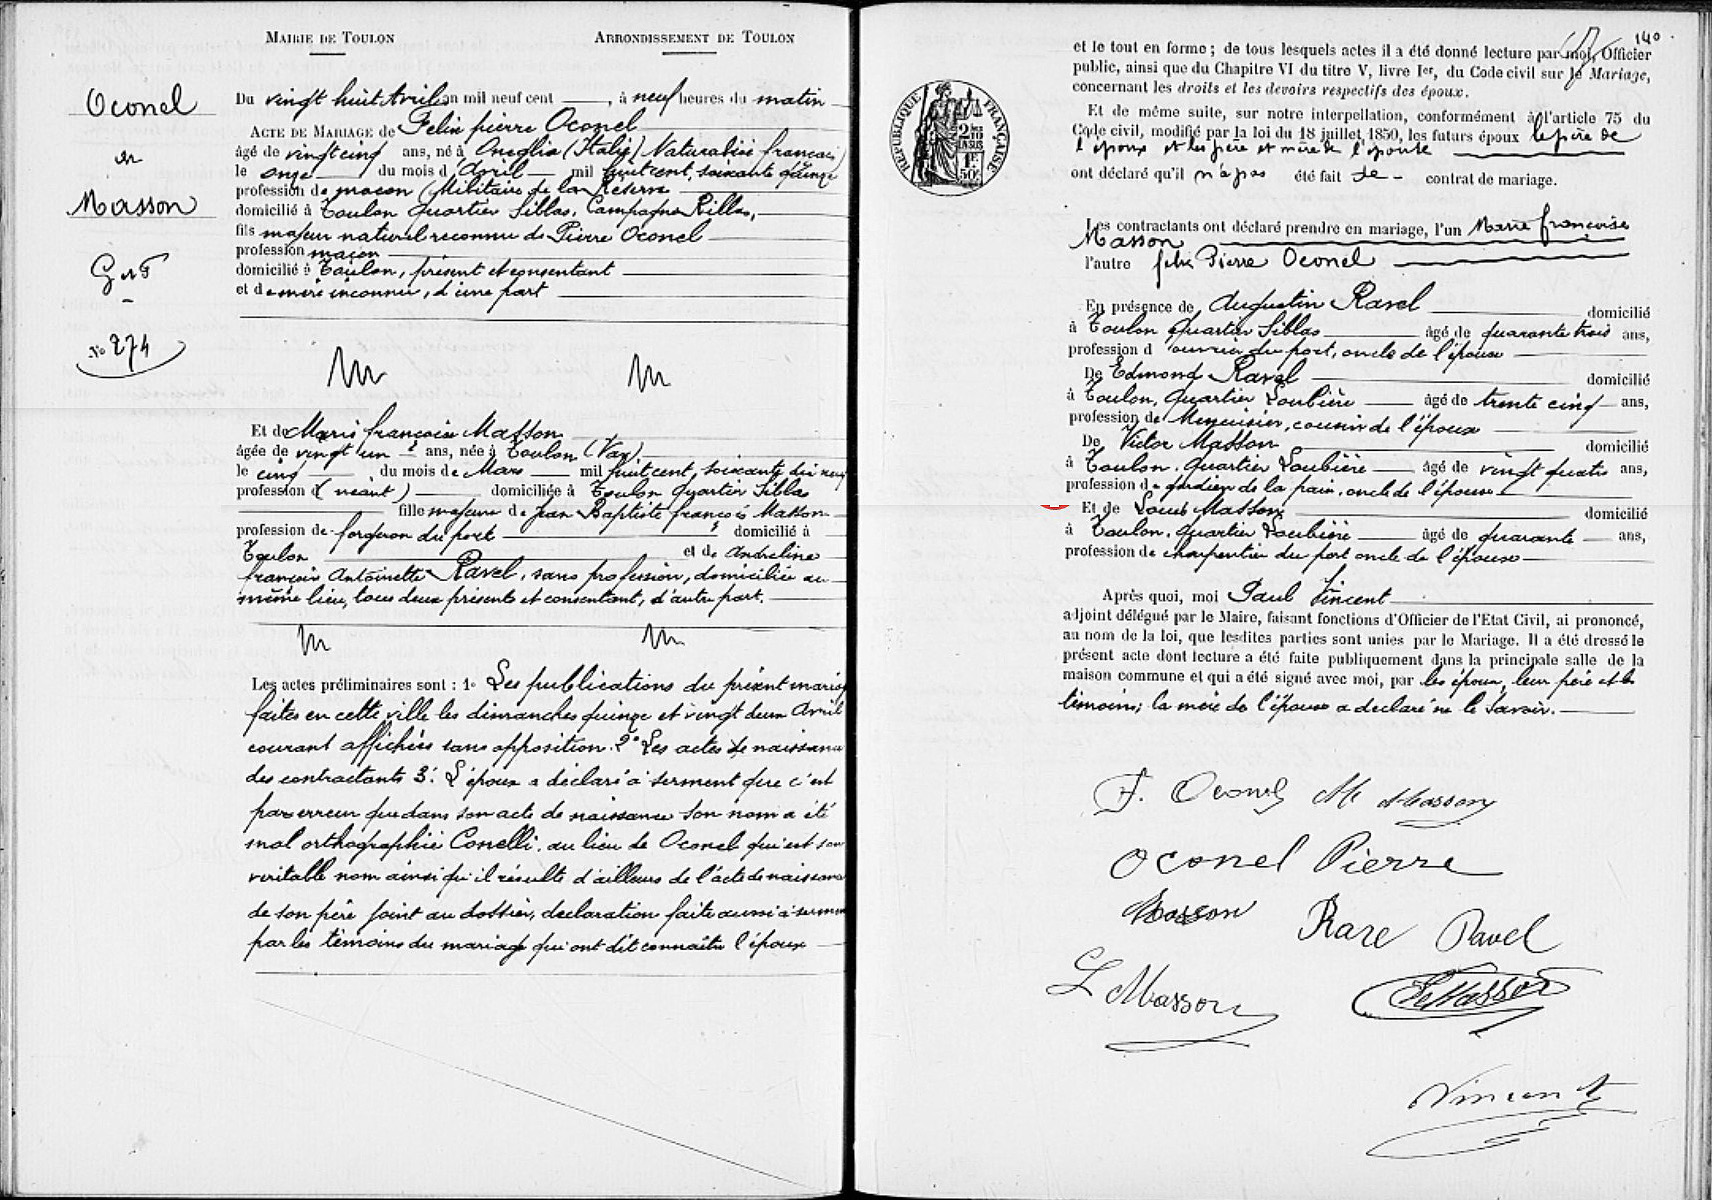 MAIRIE DE TOULON
ARRONDISSEMENT DE TOULON
Oconel
et
Masson
No 274
Du vingt huit Avril an mil neuf cent , à neuf heures du matin
ACTE DE MARIAGE de Felix pierre Oconel
âgé de vingt cinq ans, né à Oneglia (Italie) Naturalisé français
le onze du mois d'Avril mil huit cent, soixante quinze
profession de maçon (Militaire de la Réserve
domicilié à Toulon quartier Siblas, Campagne
fils majeur naturel reconnu de Pierre Oconel
profession maçon
domicilié à Toulon, présent et consentant
et de mère inconnue, d'une part
Et de Marie françoise Masson
âgée de vingt un ans, née à Toulon (Var)
le cinq du mois de Mars mil huit cent, soixante dix neuf
profession d (néant) domiciliée à Toulon quartier Siblas
fille majeure de Jean Baptiste françois Masson
profession de forgeron du port domicilié à
Toulon et de Andreline
françoise Antoinette Ravel, sans profession, domiciliée au
même lieu, tous deux présents et consentant, d'autre part.
Les actes préliminaires sont : 1° Les publications du présent mariage
faites en cette ville les dimanches quinze et vingt deux Avril
courant affichées sans opposition. 2° Les actes de naissance
des contractants 3°. L'époux a déclaré à serment que c'est
par erreur que dans son acte de naissance son nom a été
mal orthographié Conelli, au lieu de Oconel qui est son
veritable nom ainsi qu'il résulte d'ailleurs de l'acte de naissance
de son père joint au dossier, declaration faite aussi à serment
par les témoins du mariage qui ont dit connaître l'époux
140
RÉPUBLIQUE FRANÇAISE
et le tout en forme ; de tous lesquels actes il a été donné lecture par moi, Officier
public, ainsi que du Chapitre VI du titre V, livre Ier, du Code civil sur le Mariage,
concernant les droits et les devoirs respectifs des époux.
Et de même suite, sur notre interpellation, conformément à l'article 75 du
Code civil, modifié par la loi du 18 juillet 1850, les futurs époux le père de
l'époux et les père et mère de l'épouse
ont déclaré qu'il n'a pas été fait de contrat de mariage.
Les contractants ont déclaré prendre en mariage, l'un Marie françoise
Masson
l'autre felix Pierre Oconel
En présence de Augustin Ravel domicilié
à Toulon quartier Siblas âgé de quarante trois ans,
profession d'ouvrier du port, oncle de l'épouse
De Edmond Ravel domicilié
à Toulon, quartier Loubière âgé de trente cinq ans,
profession de Menuisier, cousin de l'épouse
De Victor Masson domicilié
à Toulon, quartier Loubière âgé de vingt quatre ans,
profession de gardien de la paix, oncle de l'épouse
Et de Louis Masson domicilié
à Toulon, quartier Loubière âgé de quarante ans,
profession de charpentier du port oncle de l'épouse
Après quoi, moi Paul Vincent
adjoint délégué par le Maire, faisant fonctions d'Officier de l'Etat Civil, ai prononcé,
au nom de la loi, que lesdites parties sont unies par le Mariage. Il a été dressé le
présent acte dont lecture a été faite publiquement dans la principale salle de la
maison commune et qui a été signé avec moi, par les époux, leur père et les
témoins; la mère de l'épouse a déclaré ne le savoir.
F. Oconel M Masson
Oconel Pierre
Masson Rave Ravel
L Masson Masson
Vincent